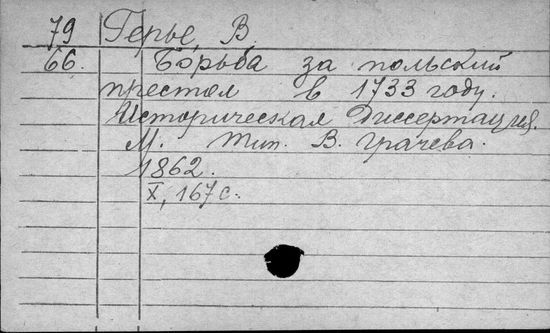 79 Герье, В.
66. Борьба за польский
престол в 1733 году.
Историческая Диссертация.
М. Тип. В. Грачева.
1862.
X, 167 с.